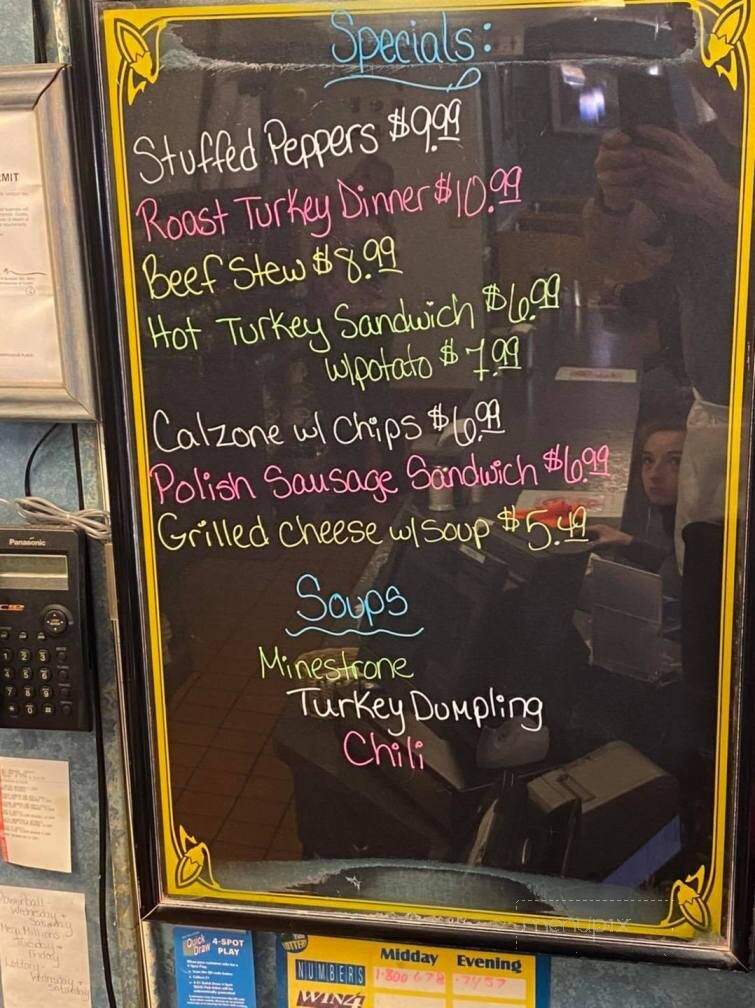 Specials:
Stuffed Peppers $9.99
Roast Turkey Dinner $10.99
Beef Stew $8.99
Hot Turkey Sandwich $6.99
w/potato $7.99
Calzone w/ Chips $6.99
Polish Sausage Sandwich $6.99
Grilled Cheese w/ Soup $5.49
Soups
Minestrone
Turkey Dumpling
Chili
MIT
Panasonic
Powerball
Wednesday +
Saturday
Mega Millions
Tuesday +
Friday
Lottery
Wednesday +
Saturday
Quick Draw 4-SPOT
PLAY
Midday Evening
NUMBERS
WIN4
menupix